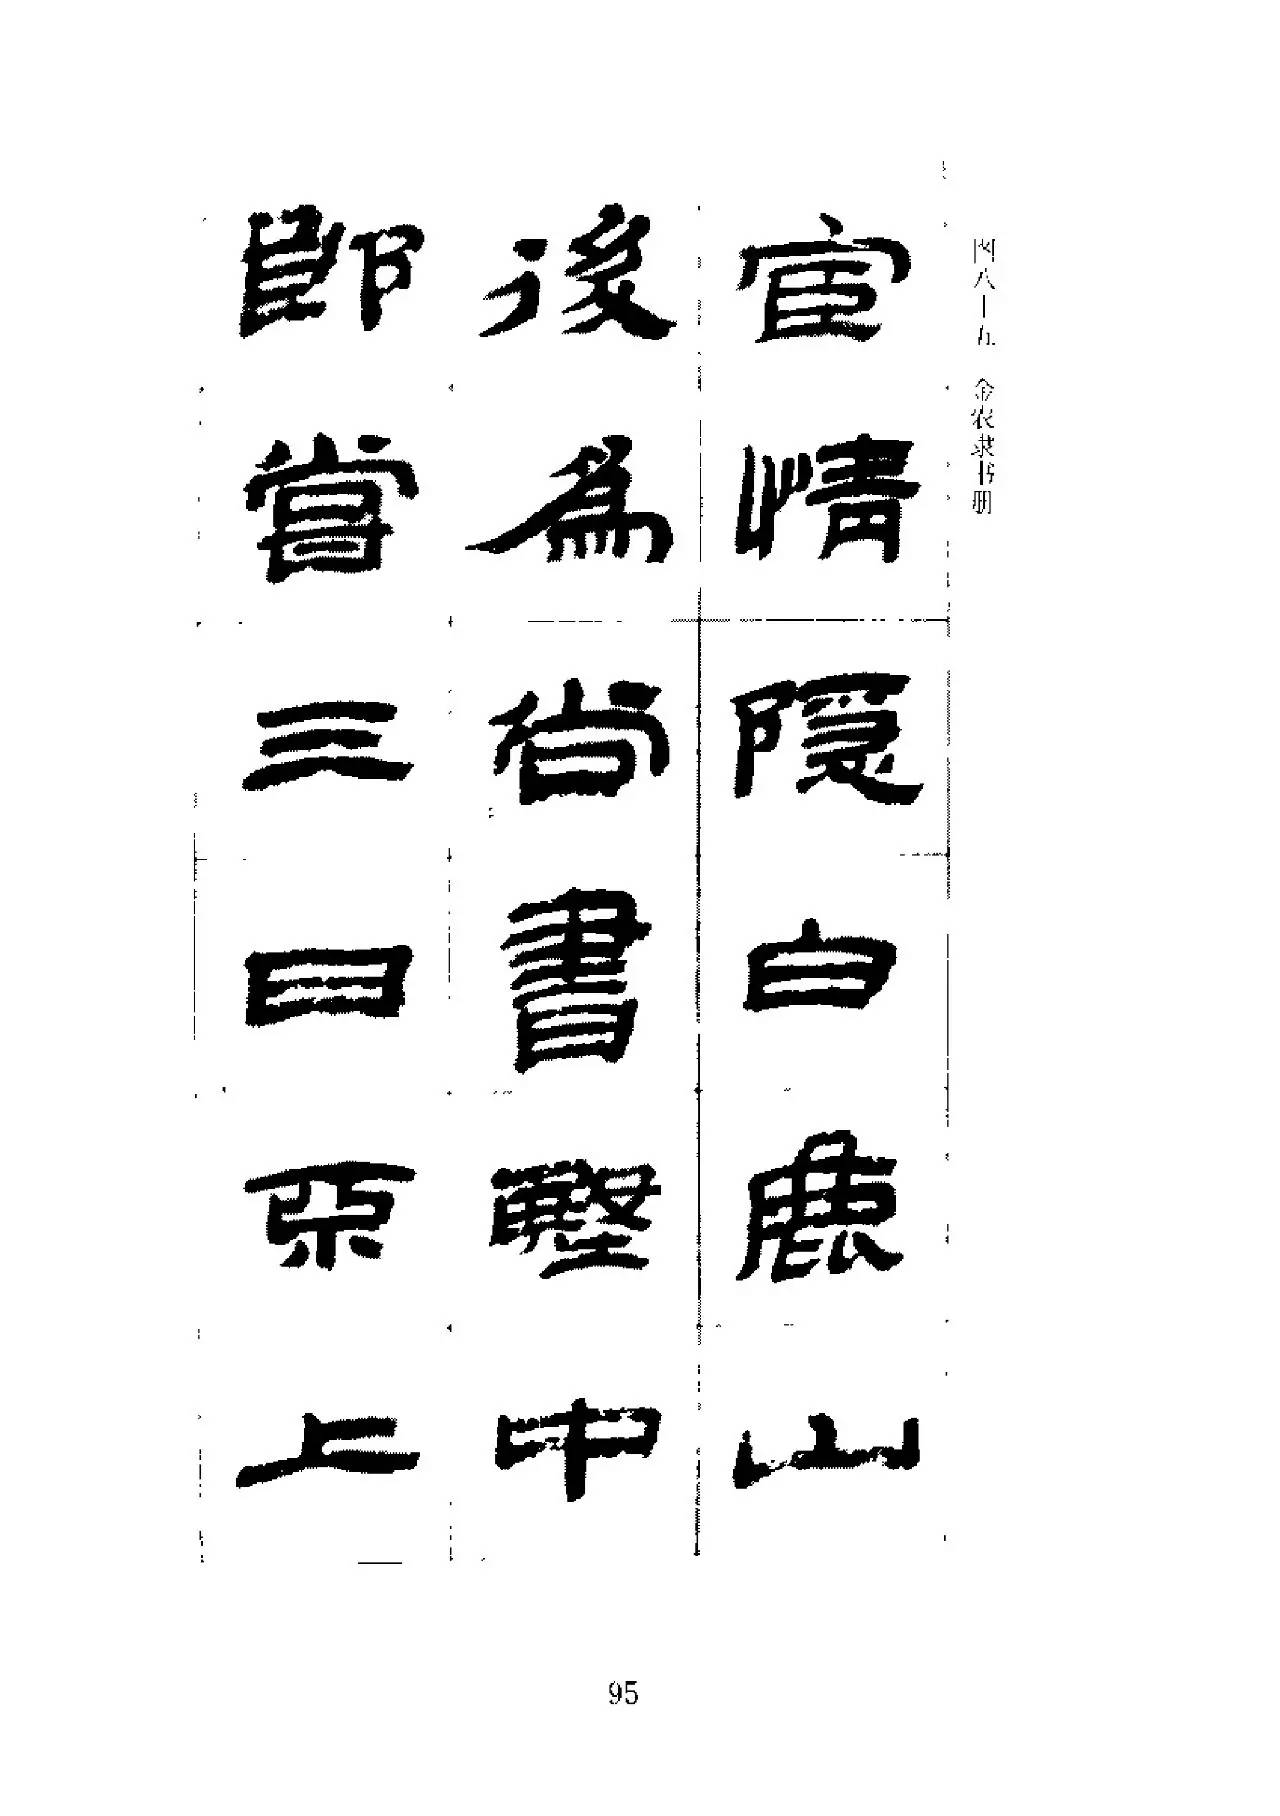 图八一五 金农隶书册
宦情隐白鹿山
後為尚書殿中
郎嘗三日不上
95